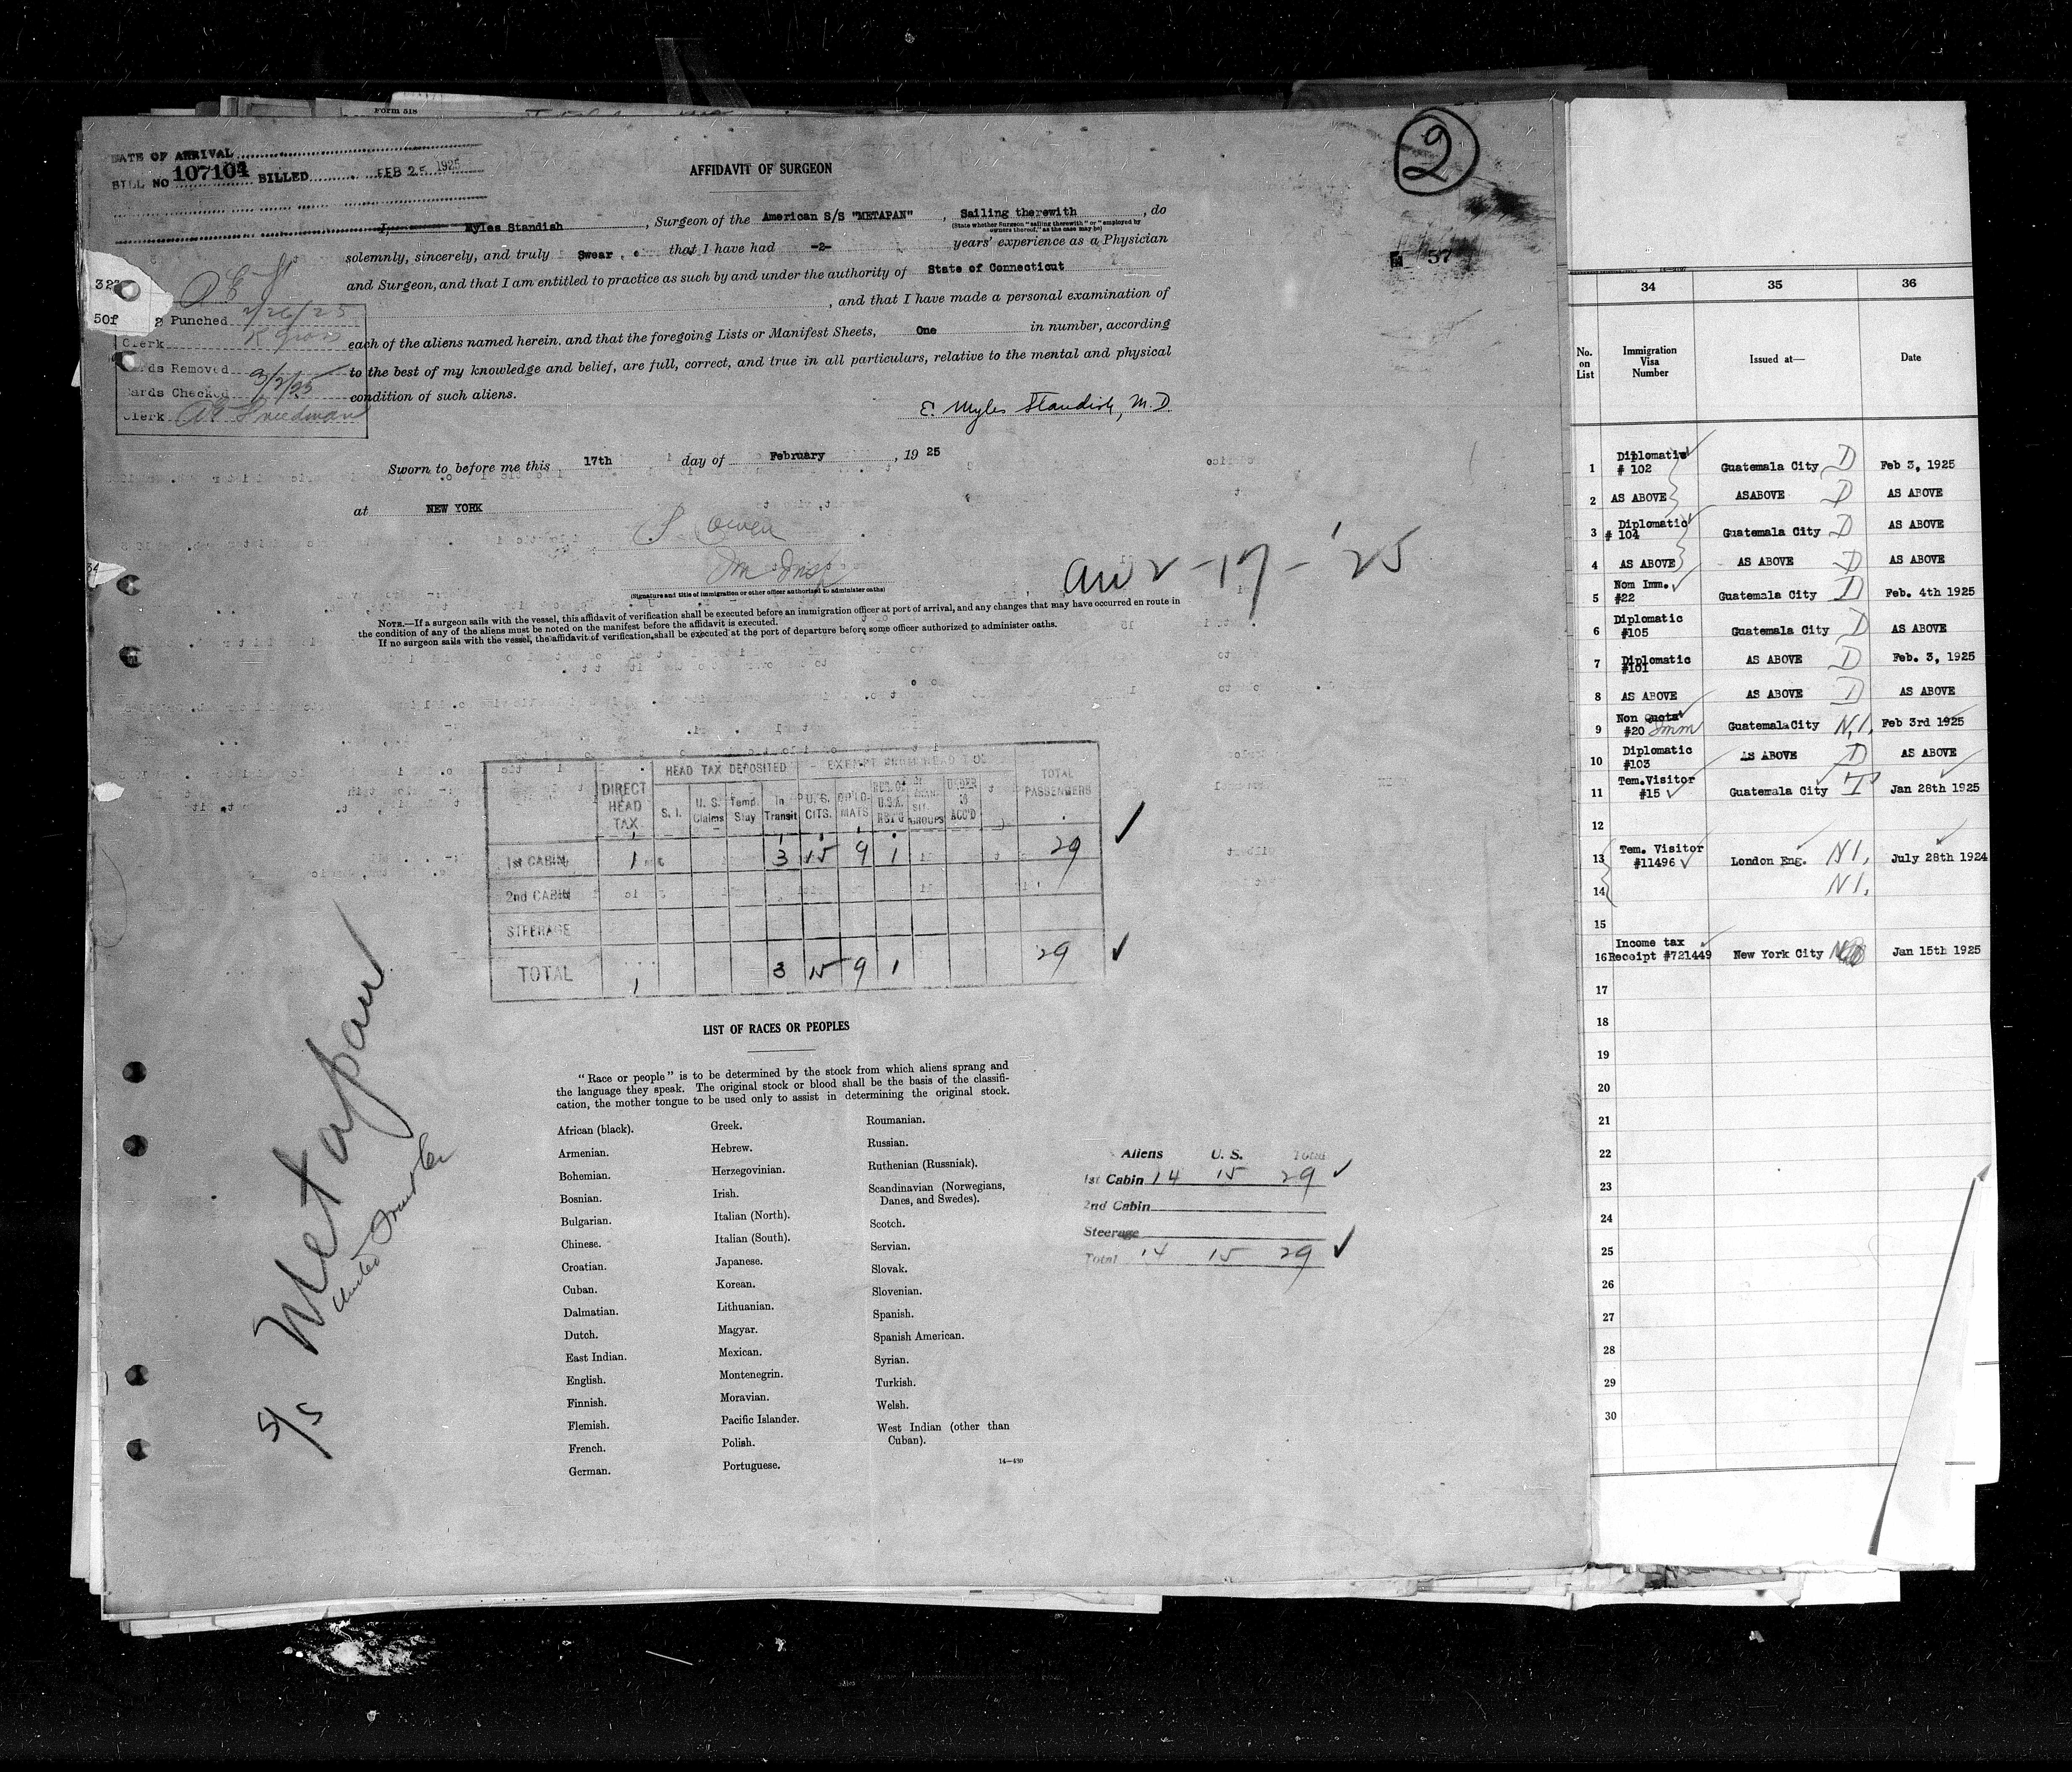 Form 518
DATE OF ARRIVAL
BILL NO 107104 BILLED FEB 25 1925
AFFIDAVIT OF SURGEON
2
I, Myles Standish, Surgeon of the American S/S "METAPAN", Sailing therewith, do
(State whether Surgeon "sailing therewith" or "employed by
owners thereof," as the case may be)
solemnly, sincerely, and truly Swear that I have had -2- years' experience as a Physician
57
and Surgeon, and that I am entitled to practice as such by and under the authority of State of Connecticut
, and that I have made a personal examination of
each of the aliens named herein, and that the foregoing Lists or Manifest Sheets, One in number, according
to the best of my knowledge and belief, are full, correct, and true in all particulars, relative to the mental and physical
condition of such aliens.
E. Myles Standish, M.D.
Punched 2/26/25
Clerk
Cards Removed
Cards Checked 3/2/25
Clerk
Sworn to before me this 17th day of February, 19 25
at NEW YORK
S. Owen
Im Insp
(Signature and title of immigration or other officer authorized to administer oaths)
2-17-'25
NOTE.—If a surgeon sails with the vessel, this affidavit of verification shall be executed before an immigration officer at port of arrival, and any changes that may have occurred en route in
the condition of any of the aliens must be noted on the manifest before the affidavit is executed.
If no surgeon sails with the vessel, the affidavit of verification shall be executed at the port of departure before some officer authorized to administer oaths.
DIRECT HEAD TAX HEAD TAX DEPOSITED EXEMPT TOTAL PASSENGERS
S. I. U. S. Claims Temp. Stay In Transit U. S. CITS. DIPLOMATS UNDER 16 ACC'D
1st CABIN 1 3 15 9 1 29
2nd CABIN
STEERAGE
TOTAL 1 3 15 9 1 29
LIST OF RACES OR PEOPLES
"Race or people" is to be determined by the stock from which aliens sprang and
the language they speak. The original stock or blood shall be the basis of the classifi-
cation, the mother tongue to be used only to assist in determining the original stock.
African (black).
Armenian.
Bohemian.
Bosnian.
Bulgarian.
Chinese.
Croatian.
Cuban.
Dalmatian.
Dutch.
East Indian.
English.
Finnish.
Flemish.
French.
German.
Greek.
Hebrew.
Herzegovinian.
Irish.
Italian (North).
Italian (South).
Japanese.
Korean.
Lithuanian.
Magyar.
Mexican.
Montenegrin.
Moravian.
Pacific Islander.
Polish.
Portuguese.
Roumanian.
Russian.
Ruthenian (Russniak).
Scandinavian (Norwegians,
Danes, and Swedes).
Scotch.
Servian.
Slovak.
Slovenian.
Spanish.
Spanish American.
Syrian.
Turkish.
Welsh.
West Indian (other than
Cuban).
14—430
Aliens U. S. Total
1st Cabin 14 15 29
2nd Cabin
Steerage
Total 14 15 29
S/S Metapan
United Fruit Co
34 35 36
No. on List Immigration Visa Number Issued at— Date
1 Diplomatic # 102 Guatemala City D Feb 3, 1925
2 AS ABOVE ASABOVE D AS ABOVE
3 Diplomatic # 104 Guatemala City D AS ABOVE
4 AS ABOVE AS ABOVE D AS ABOVE
5 Nom Imm. #22 Guatemala City D Feb. 4th 1925
6 Diplomatic #105 Guatemala City D AS ABOVE
7 Diplomatic #101 AS ABOVE D Feb. 3, 1925
8 AS ABOVE AS ABOVE D AS ABOVE
9 Non Quota #20 Imm GuatemalaCity N.I. Feb 3rd 1925
10 Diplomatic #103 AS ABOVE D AS ABOVE
11 Tem.Visitor #15 Guatemala City T Jan 28th 1925
12
13 Tem. Visitor #11496 London Eng. N I. July 28th 1924
14 N I.
15
16 Income tax Receipt #721449 New York City Jan 15th 1925
17
18
19
20
21
22
23
24
25
26
27
28
29
30